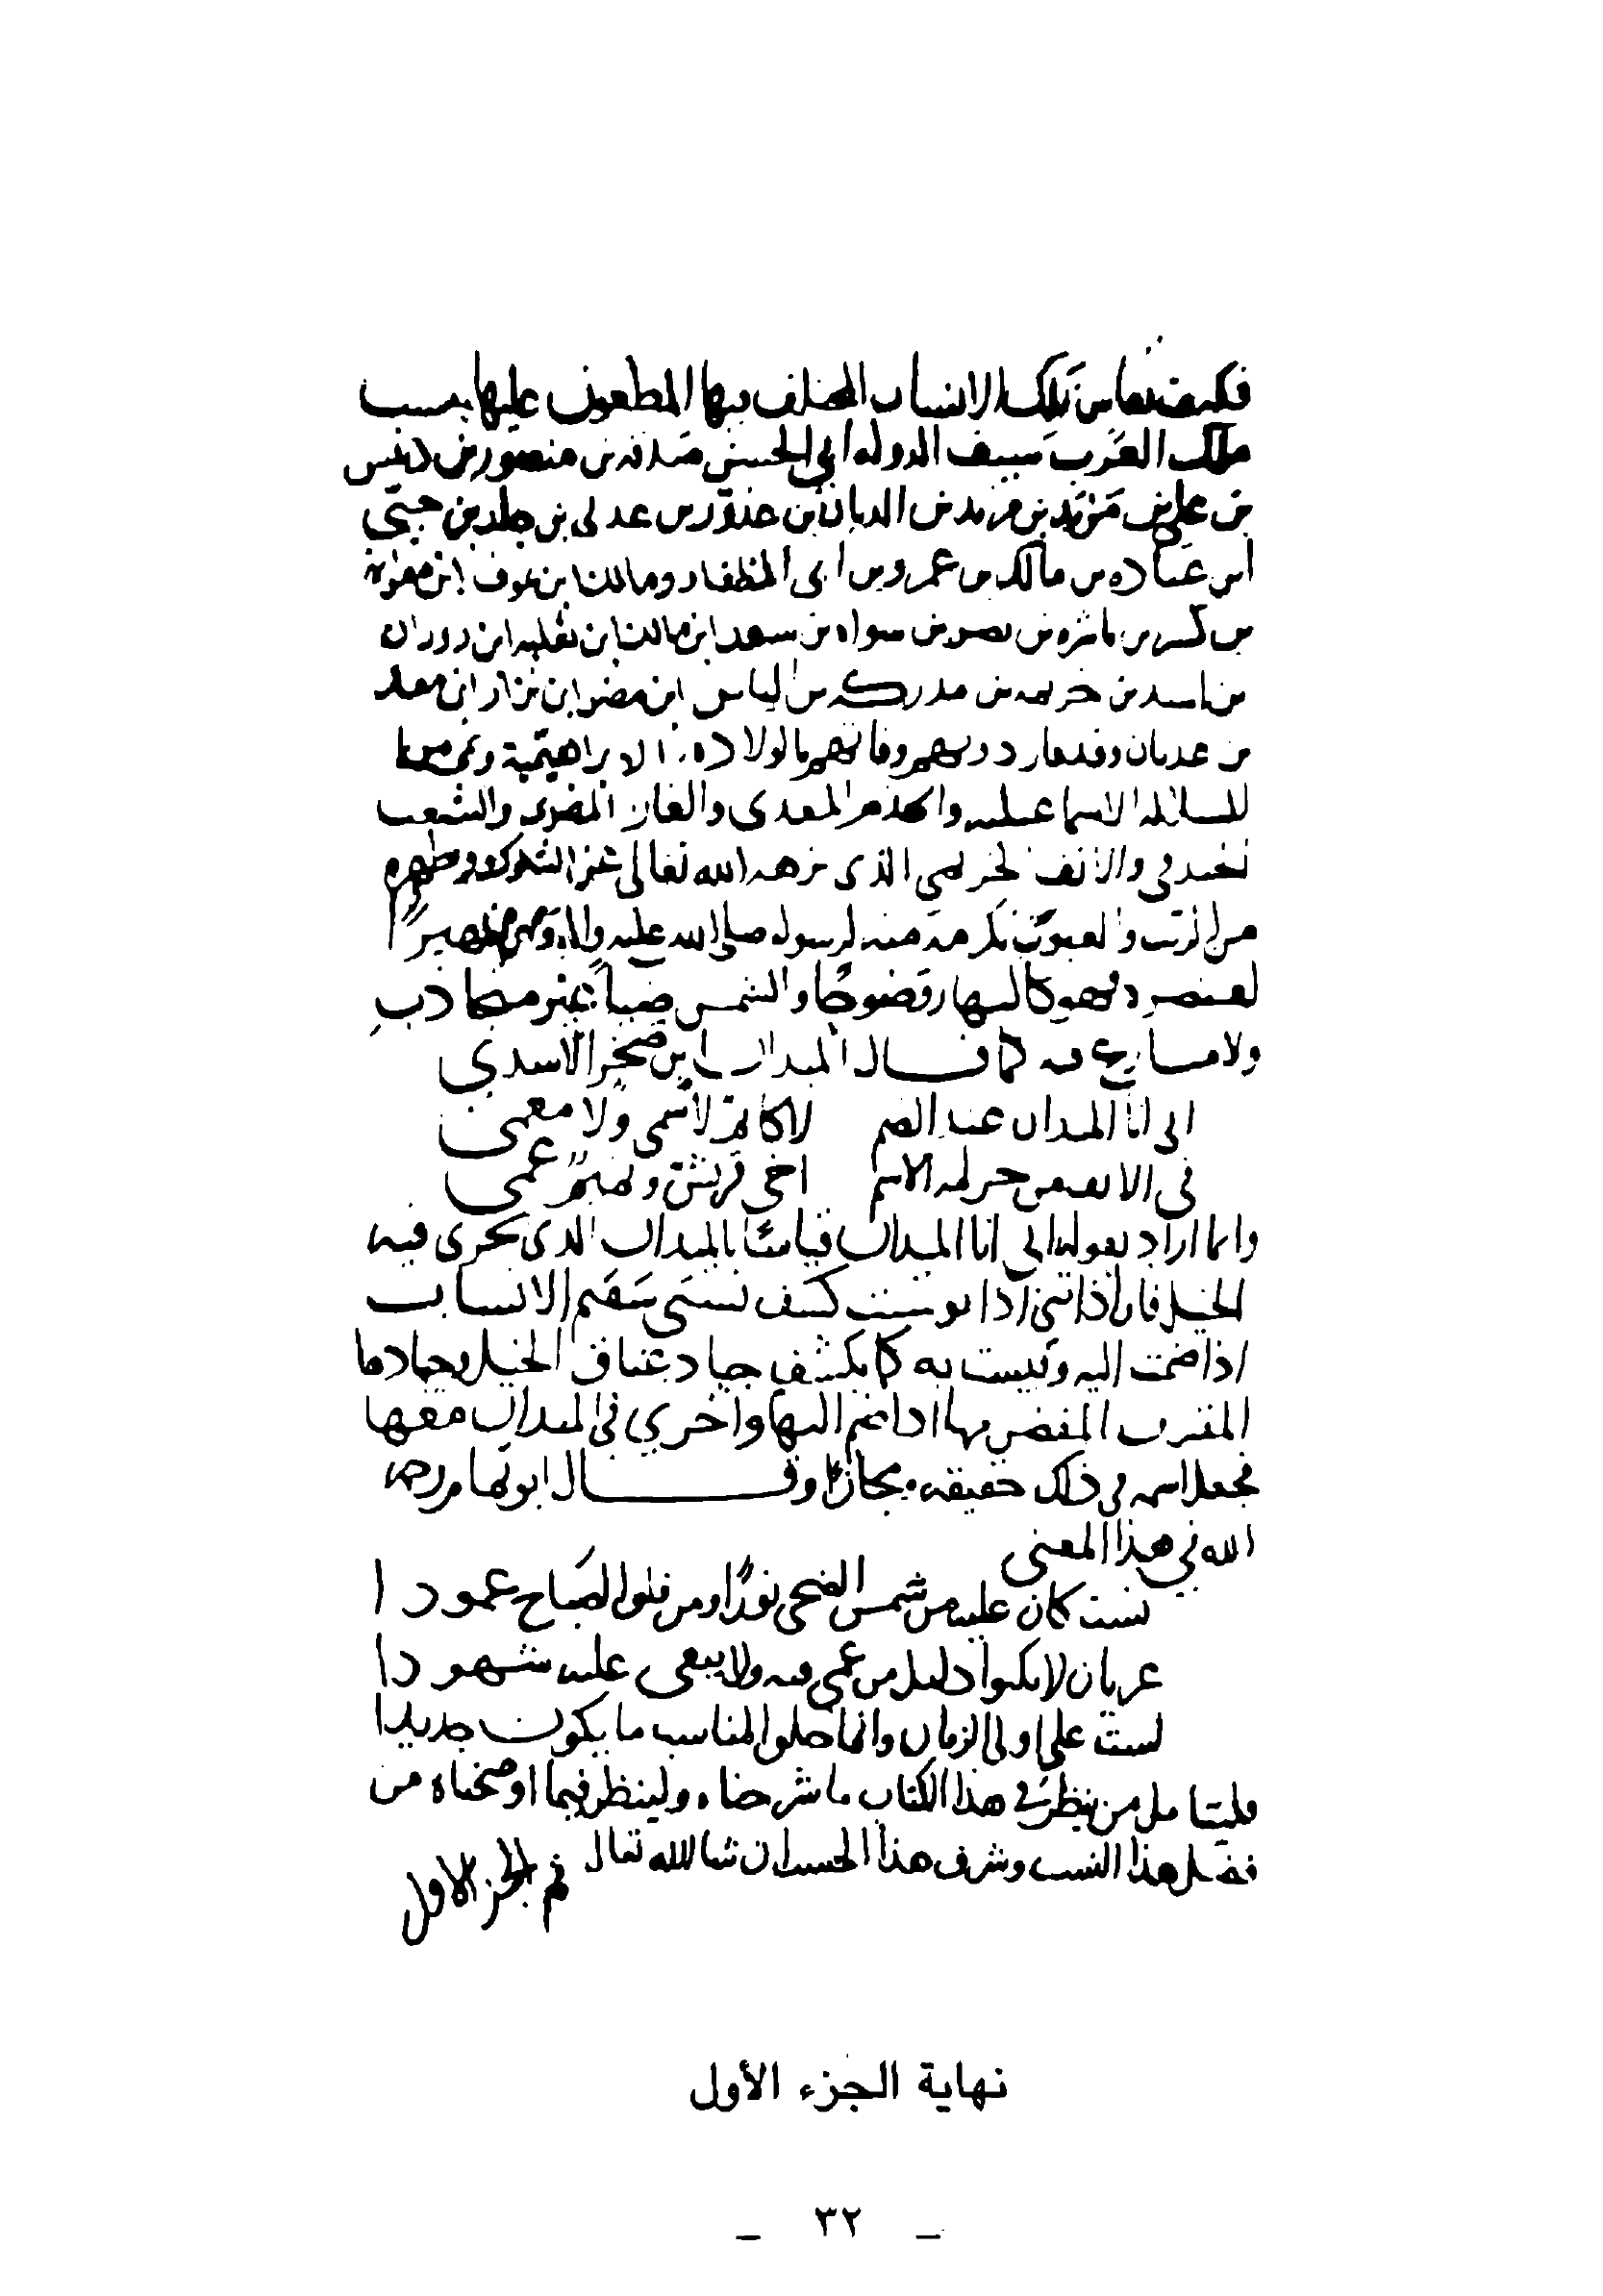 فكيف تقاس تلك الانساب المختلف فيها المطعون عليها بنسب
ملك العرب سيف الدوله ابي الحسن صدقه بن منصور بن دبيس
بن علي بن مزيد بن مرثد بن الديان بن عدلى بن خلد بن حيي
ابن عباده بن مالك بن عمرو بن ابى المظفار ومالك ابن عوف ابن معويه
بن كسر بن ناشره بن نصر بن سواه بن سعد ابن مالك ابن ثعلبه ابن دودان
بن اسد بن خزيمه بن مدركه بن الياس ابن مضر ابن نزار ابن معد
بن عدنان وقد بالولاده الابراهيمية
للسلاله الاسماعيليه المعدى المضرى والشعب
الخندفى والانف الخزيمي الذى نزهه الله تعالى عن الشكوك وطهره
من الريب والعيوب تكرمة منه لرسوله صلى الله عليه
لعنصره فهو كالنهار وضوحا والشمس ضياء بغير مكاذب
ولا منازع فيه كما قال الميدان ابن صخر الاسدي
انى انا الميدان عند الضم لاكاتم لاسمى ولا معمى
فى الانف من خزيمه الاشم اخى قريش وتميم عمى
وانما اراد بقوله انى انا الميدان قياسا بالميدان الذى تجرى فيه
الخيل فان اذا كشف نسبى سقم الانساب
اذا ضمت اليه وقيست به كما يكشف جياد عتاق الخيل وجيادها
المقرف المقصر بها اذا ضم اليها واجري فى الميدان معها
فجعل اسمه فى ذلك حقيقه ومجازا وقال ابو تمام رحمه
الله في هذا المعنى
نسب كان عليه من شمس الضحى نورا ومن فلق الصباح عمودا
عريان لا يكبوا دليل من عمى فيه ولا يبغى عليه شهودا
نسب على اولى الزمان وانما خلق المناسب ما يكون جديدا
فليتامل من ينظر فى هذا الكتاب ما شرحناه ولينظر فيما اوضحناه من
فضل هذا النسب وشرف هذا الحسب ان شا الله تعالى تم الجز الاول
نهاية الجزء الأول
_ ٣٢ _